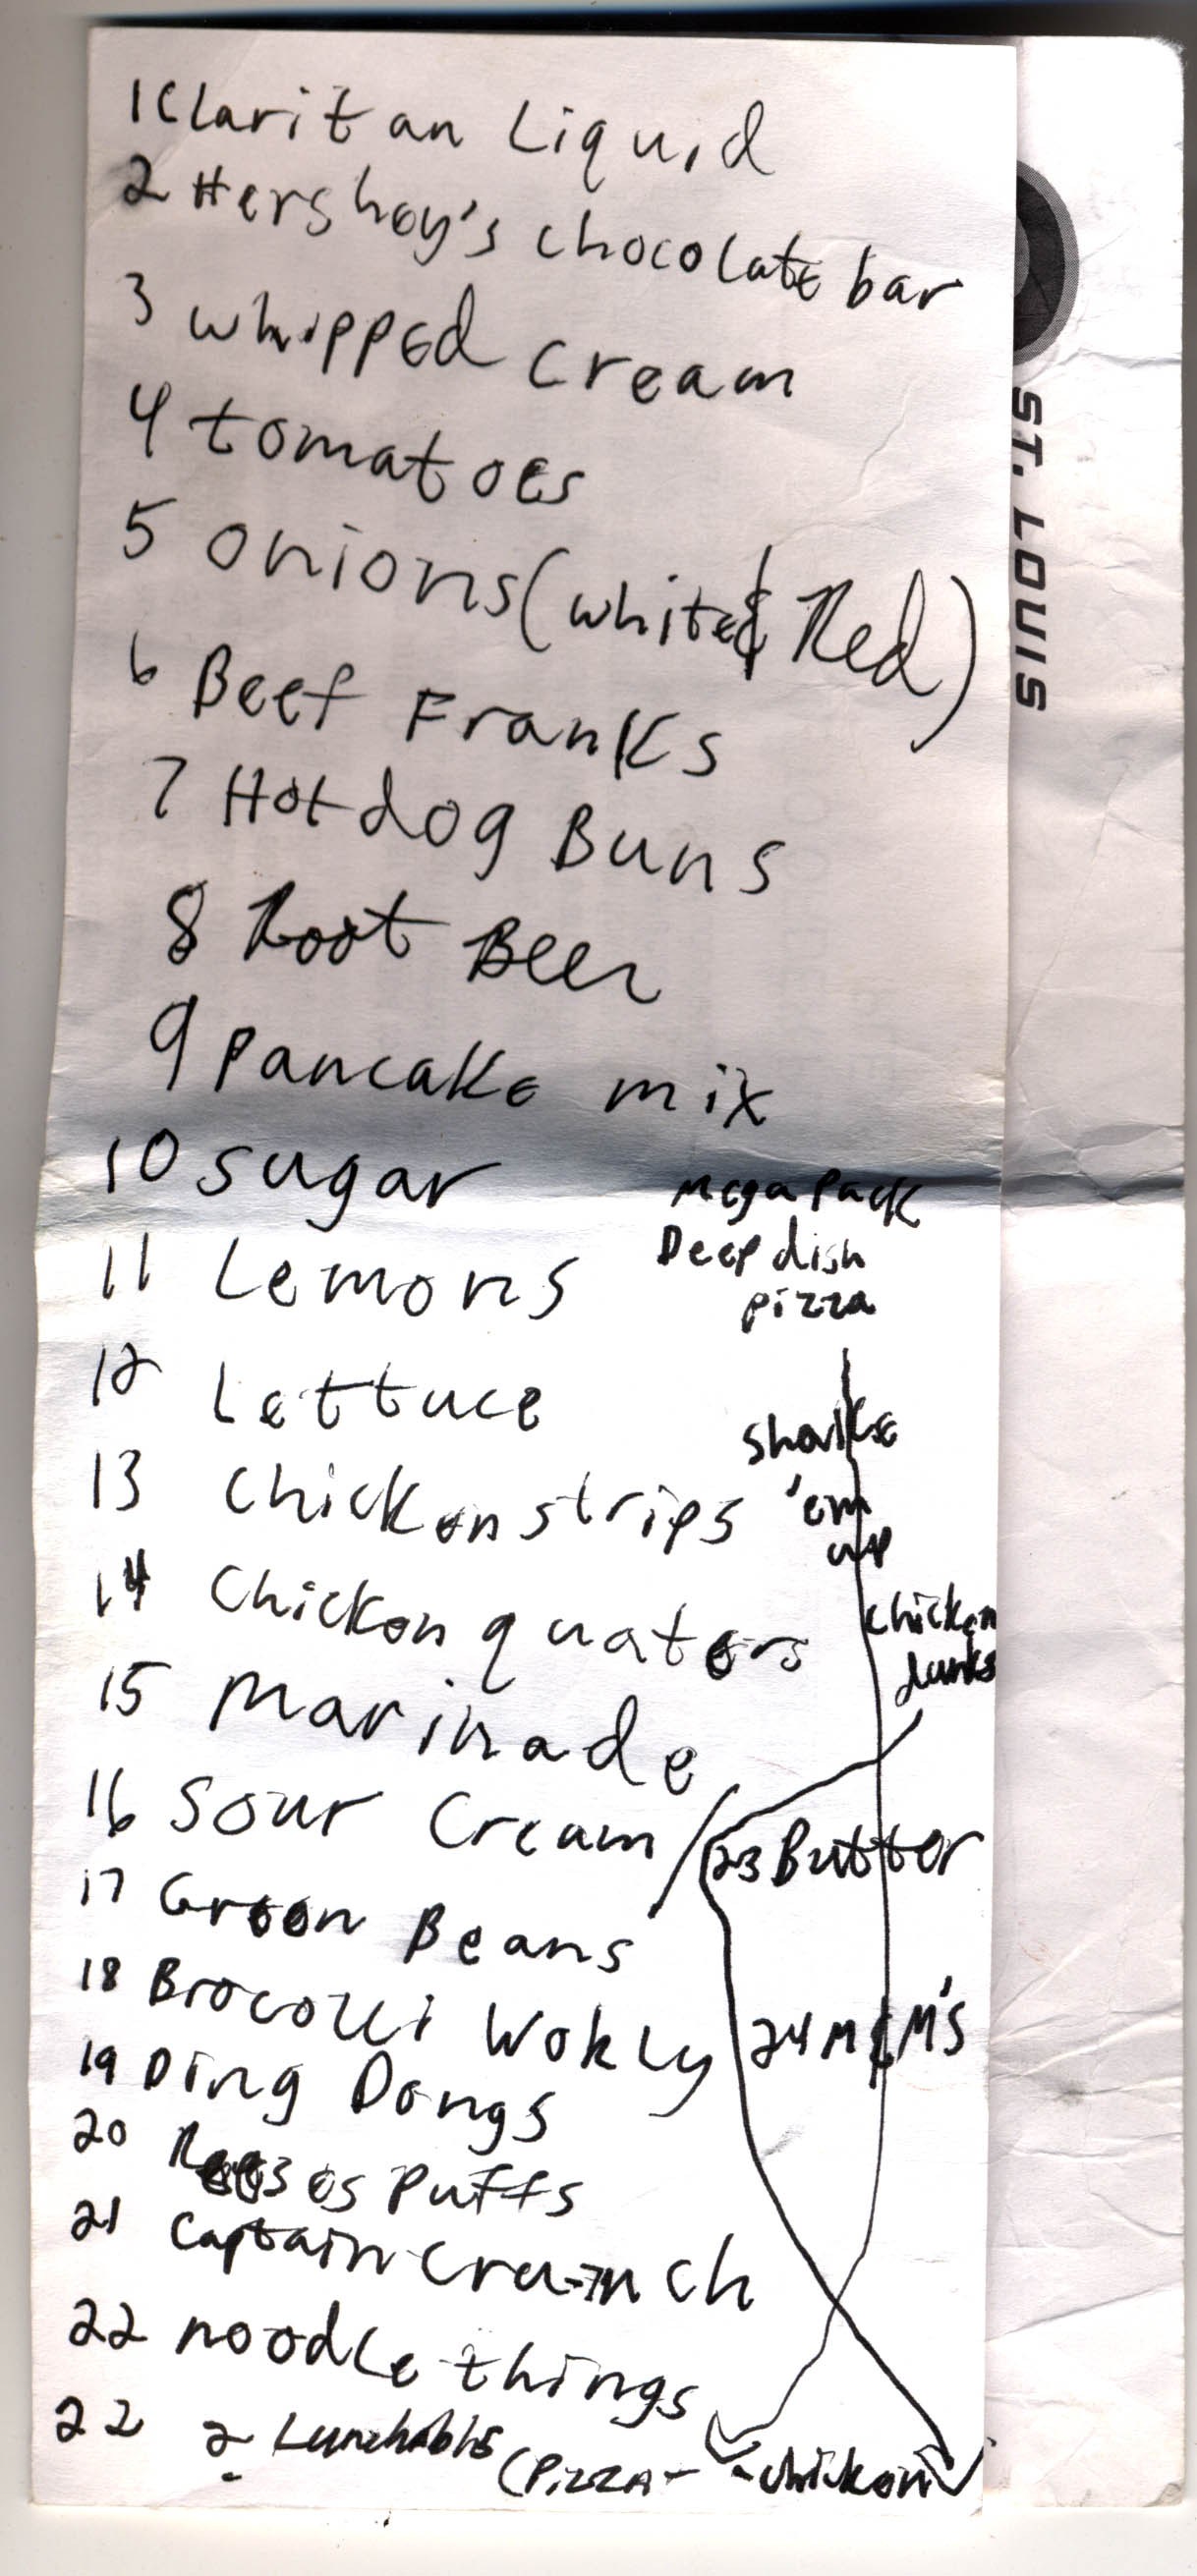 1 Claritan Liquid
2 Hershey's chocolate bar
3 whipped cream
4 tomatoes
5 onions (white & Red)
6 Beef Franks
7 Hotdog Buns
8 Root Beer
9 pancake mix
10 sugar
11 Lemons
12 Lettuce
13 chicken strips
14 Chicken quaters
15 marinade
16 Sour Cream
17 Green Beans
18 Brocolli Wokly
19 Ding Dongs
20 Reeses Puffs
21 Captain Crunch
22 noodle things
22 2 Lunchables (Pizza - - chicken)
Mega Pack
Deep dish
pizza
shake
'em
up
chicken
dunks
23 Butter
24 M&M's
ST. LOUIS